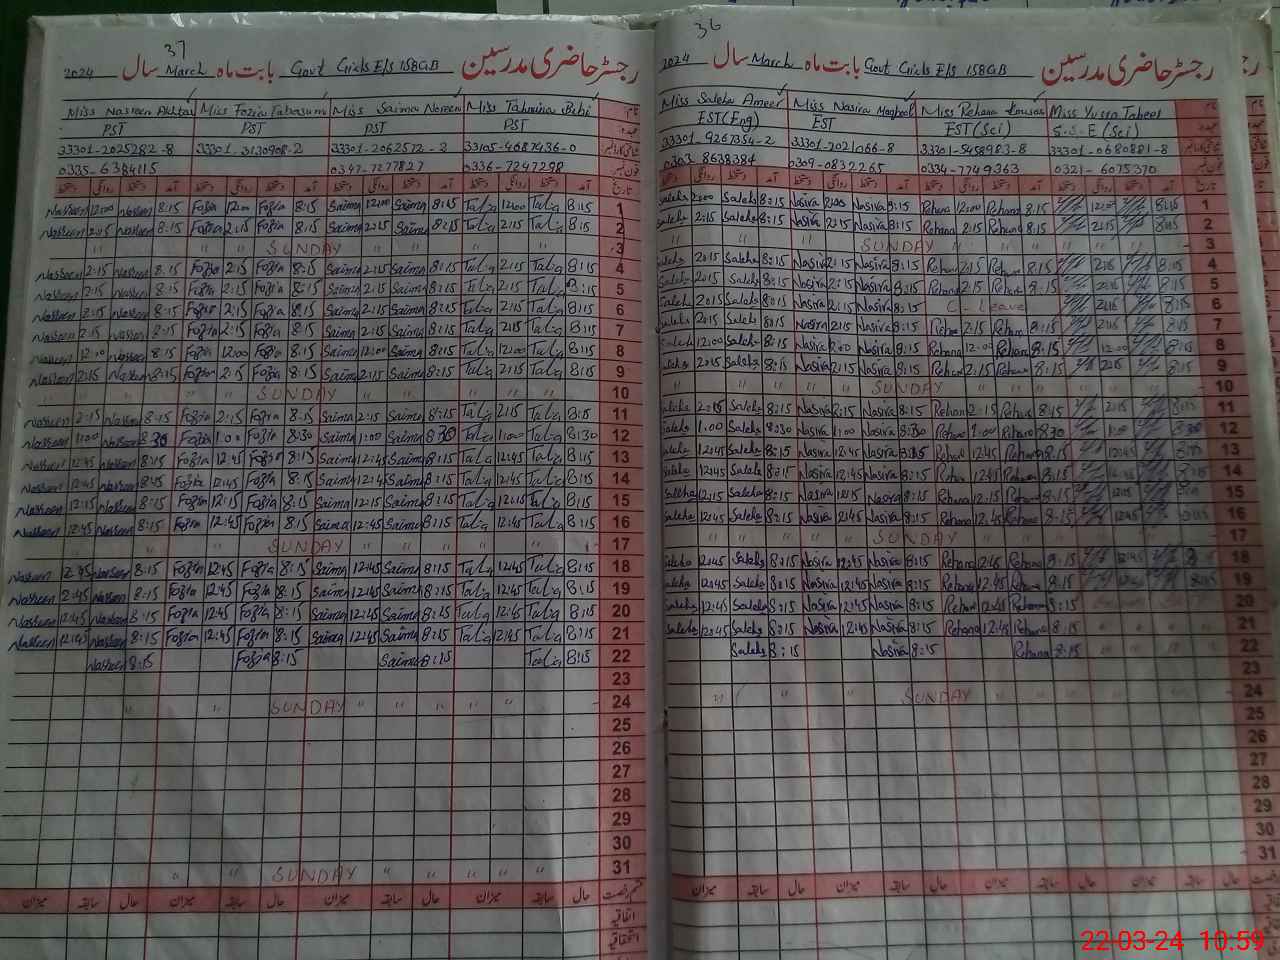 37
رجسٹر حاضری مدرسین Govt Girls E/S 158GB بابت ماہ March سال 2024
Miss Nasreen Akhtar Miss Fozia Tabasum Miss Saima Noreen Miss Tahmina Bibi نام
PST PST PST PST عہدہ
33301-2025282-8 33301-3130908-2 33301-2062572-2 33105-4687436-0
0335-6384115 0347-7277827 0336-7247298 فون نمبر
دستخط روانگی دستخط آمد دستخط روانگی دستخط آمد دستخط روانگی دستخط آمد دستخط روانگی دستخط آمد تاریخ
Nasreen 12:00 Nasreen 8:15 Fozia 12:00 Fozia 8:15 Saima 12:00 Saima 8:15 12:00 8:15 1
Nasreen 2:15 Nasreen 8:15 Fozia 2:15 Fozia 8:15 Saima 2:15 Saima 8:15 2:15 8:15 2
SUNDAY 3
Nasreen 2:15 Nasreen 8:15 Fozia 2:15 Fozia 8:15 Saima 2:15 Saima 8:15 2:15 8:15 4
Nasreen 2:15 Nasreen 8:15 Fozia 2:15 Fozia 8:15 Saima 2:15 Saima 8:15 2:15 8:15 5
Nasreen 2:15 Nasreen 8:15 Fozia 2:15 Fozia 8:15 Saima 2:15 Saima 8:15 2:15 8:15 6
Nasreen 2:15 Nasreen 8:15 Fozia 2:15 Fozia 8:15 Saima 2:15 Saima 8:15 2:15 8:15 7
Nasreen 12:00 Nasreen 8:15 Fozia 12:00 Fozia 8:15 Saima 12:00 Saima 8:15 12:00 8:15 8
Nasreen 2:15 Nasreen 8:15 Fozia 2:15 Fozia 8:15 Saima 2:15 Saima 8:15 2:15 8:15 9
SUNDAY 10
Nasreen 2:15 Nasreen 8:15 Fozia 2:15 Fozia 8:15 Saima 2:15 Saima 8:15 2:15 8:15 11
Nasreen 1:00 Nasreen 8:30 Fozia 1:00 Fozia 8:30 Saima 1:00 Saima 8:30 1:00 8:30 12
Nasreen 12:45 Nasreen 8:15 Fozia 12:45 Fozia 8:15 Saima 12:45 Saima 8:15 12:45 8:15 13
Nasreen 12:45 Nasreen Fozia 12:45 Fozia 8:15 Saima 12:45 Saima 8:15 12:45 8:15 14
Nasreen 12:15 Nasreen 8:15 Fozia 12:15 Fozia 8:15 Saima 12:15 Saima 8:15 12:15 8:15 15
Nasreen 12:45 Nasreen 8:15 Fozia 12:45 Fozia 8:15 Saima 12:45 Saima 8:15 12:45 8:15 16
SUNDAY 17
Nasreen 2:45 Nasreen 8:15 Fozia 12:45 Fozia 8:15 Saima 12:45 Saima 8:15 12:45 8:15 18
Nasreen 2:45 Nasreen 8:15 Fozia 12:45 Fozia 8:15 Saima 12:45 Saima 8:15 12:45 8:15 19
Nasreen 12:45 Nasreen 8:15 Fozia 12:45 Fozia 8:15 Saima 12:45 Saima 8:15 12:45 8:15 20
Nasreen 12:45 Nasreen 8:15 Fozia 12:45 Fozia 8:15 Saima 12:45 Saima 8:15 12:45 8:15 21
Nasreen 8:15 Fozia 8:15 Saima 8:15 8:15 22
23
SUNDAY 24
25
26
27
28
29
30
SUNDAY 31
میزان سابقہ حال میزان سابقہ حال میزان سابقہ حال میزان سابقہ حال قسم رخصت
اتفاقیہ
36
رجسٹر حاضری مدرسین Govt Girls E/S 158GB بابت ماہ March سال 2024
Miss Saleha Ameer Miss Nasira Maqbool Miss Rehana Kousar Miss Yusra Tabeel نام
EST(Eng) EST EST(Sci) S.S.E (Sci) عہدہ
33301-9267354-2 33301-2021066-8 33301-5458983-8 33301-0680881-8
0303 8638384 0309-0832265 0334-7749363 0321-6075370 فون نمبر
دستخط روانگی دستخط آمد دستخط روانگی دستخط آمد دستخط روانگی دستخط آمد دستخط روانگی دستخط آمد تاریخ
Saleha 12:00 Saleha 8:15 Nasira 12:00 Nasira 8:15 Rehana 12:00 Rehana 8:15 12:00 8:15 1
Saleha 2:15 Saleha 8:15 Nasira 2:15 Nasira 8:15 Rehana 2:15 Rehana 8:15 2:15 8:15 2
SUNDAY 3
Saleha 2:15 Saleha 8:15 Nasira 2:15 Nasira 8:15 Rehana 2:15 Rehana 8:15 2:15 8:15 4
Saleha 2:15 Saleha 8:15 Nasira 2:15 Nasira 8:15 Rehana 2:15 Rehana 8:15 2:15 8:15 5
Saleha 2:15 Saleha 8:15 Nasira 2:15 Nasira 8:15 C-Leave 2:15 8:15 6
Saleha 2:15 Saleha 8:15 Nasira 2:15 Nasira 8:15 Rehana 2:15 Rehana 8:15 2:15 8:15 7
Saleha 12:00 Saleha 8:15 Nasira 12:00 Nasira 8:15 Rehana 12:00 Rehana 8:15 12:00 8:15 8
Saleha 2:15 Saleha 8:15 Nasira 2:15 Nasira 8:15 Rehana 2:15 Rehana 8:15 2:15 8:15 9
SUNDAY 10
Saleha 2:15 Saleha 8:15 Nasira 2:15 Nasira 8:15 Rehana 2:15 Rehana 8:15 2:15 8:15 11
Saleha 1:00 Saleha 8:30 Nasira 1:00 Nasira 8:30 Rehana 1:00 Rehana 8:30 1:00 8:30 12
Saleha 12:45 Saleha 8:15 Nasira 12:45 Nasira 8:15 Rehana 12:45 Rehana 8:15 12:45 8:15 13
Saleha 12:45 Saleha 8:15 Nasira 12:45 Nasira 8:15 Rehana 12:45 Rehana 8:15 12:45 8:15 14
Saleha 12:15 Saleha 8:15 Nasira 12:15 Nasira 8:15 Rehana 12:15 Rehana 8:15 12:15 8:15 15
Saleha 12:45 Saleha 8:15 Nasira 12:45 Nasira 8:15 Rehana 12:45 Rehana 8:15 12:45 8:15 16
SUNDAY 17
Saleha 12:45 Saleha 8:15 Nasira 12:45 Nasira 8:15 Rehana 12:45 Rehana 8:15 12:45 8:15 18
Saleha 12:45 Saleha 8:15 Nasira 12:45 Nasira 8:15 Rehana 12:45 Rehana 8:15 12:45 8:15 19
Saleha 12:45 Saleha 8:15 Nasira 12:45 Nasira 8:15 Rehana 12:45 Rehana 8:15 20
Saleha 12:45 Saleha 8:15 Nasira 12:45 Nasira 8:15 Rehana 12:45 Rehana 8:15 21
Saleha 8:15 Nasira 8:15 Rehana 8:15 22
23
SUNDAY 24
25
26
27
28
29
30
31
میزان سابقہ حال میزان سابقہ حال میزان سابقہ حال میزان سابقہ حال
22-03-24 10:59